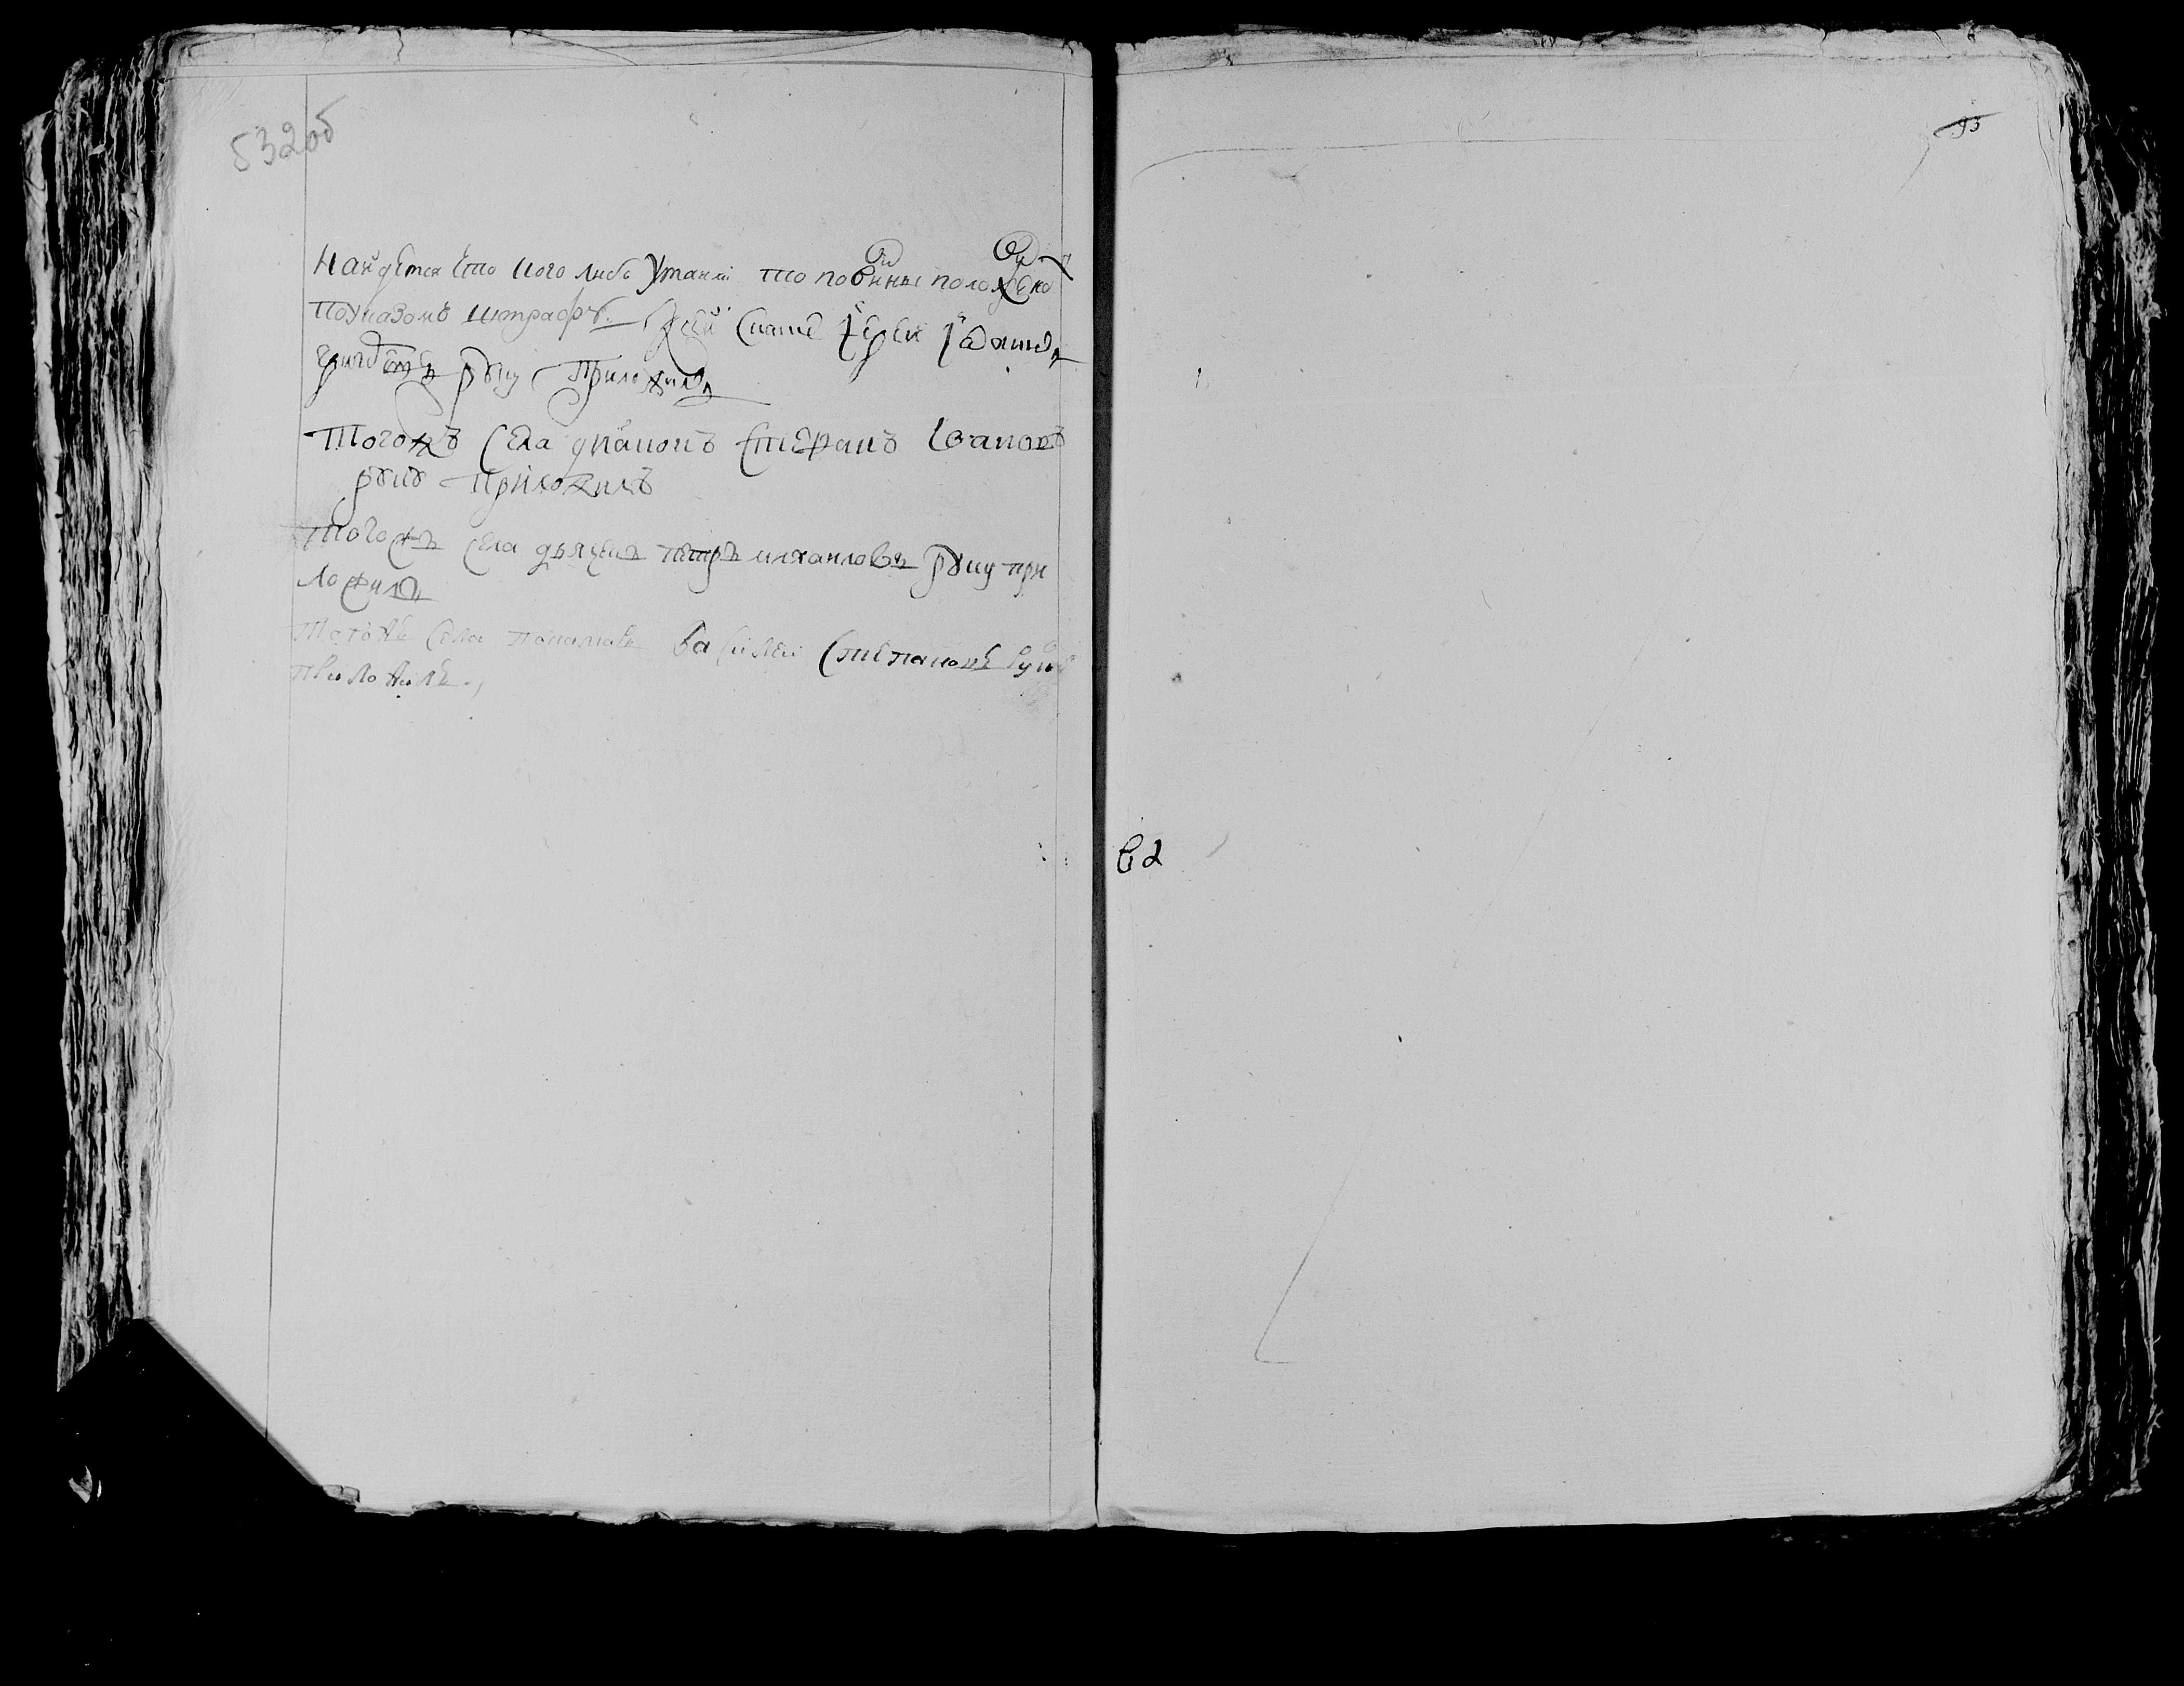 532об
найдется что кого либо утаили то повинны положено
по указомъ штрафъ
руку приложилъ
Тогожъ села диаконъ Стефанъ Iвановъ
руку приложилъ
Тогожъ села дьячекъ петръ михаиловъ руку при
ложилъ
Тогожъ села понамарь василеи степановъ руку
приложилъ